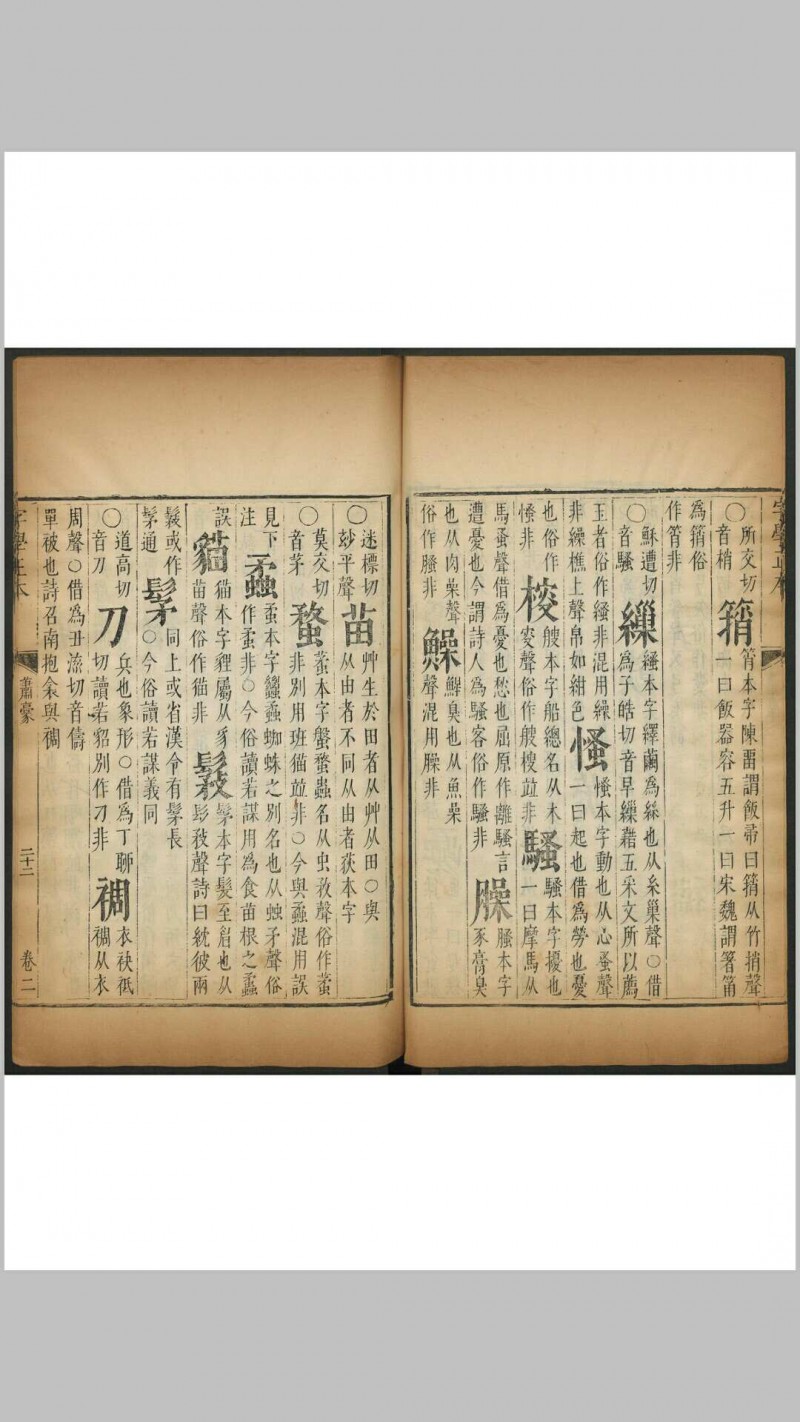 ○所交切
音梢
䈰
筲本字陳畱謂飯帚曰䈰从竹捎聲
一曰飯器容五升一曰宋魏謂箸筩
爲䈰俗
作筲非
○穌遭切
音騷
繅
本字繹繭爲絲也从糸巢聲○借
爲子皓切音早繅藉五采文所以薦
玉者俗作繅非混用繰
非繰樵上聲帛如紺色
慅
慅本字動也从心蚤聲
一曰起也借爲勞也憂
也俗作
慅非
梭
艘本字船總名从木
叜聲俗作艘㮴竝非
騷
騷本字擾也
一曰摩馬从
馬蚤聲借爲憂也愁也屈原作離騷言
遭憂也今謂詩人爲騷客俗作騷非
臊
臊本字
豕膏臭
也从肉喿聲
俗作臊非
鱢
鮏臭也从魚喿
聲混用臊非
○迷標切
玅平聲
苗
艸生於田者从艸从田○與
从由者不同从由者荻本字
○莫交切
音茅
蝥
蟊本字蟹蝥蟲名从虫敄聲俗作蟊
非別用班猫竝非○今與蟊混用誤
見下
注
蟊
蟊本字蠿蟊蜘蛛之別名也从䖵矛聲俗
作蝥非○今俗讀若謀用爲食苗根之蟊
誤
貓
猫本字貍屬从豸
苗聲俗作猫非
鬏
髳本字髮至眉也从
髟敄聲詩曰紞彼兩
鬏或作
髳通
髳
同上或省漢令有髳長
○今俗讀若謀義同
○道高切
音刀
刀
兵也象形○借爲丁聊
切讀若貂別作刁非
裯
衣袂袛
裯从衣
周聲○借爲丑㳅切音儔
單被也詩召南抱衾與裯
字學正本
蕭豪
二十二
卷二